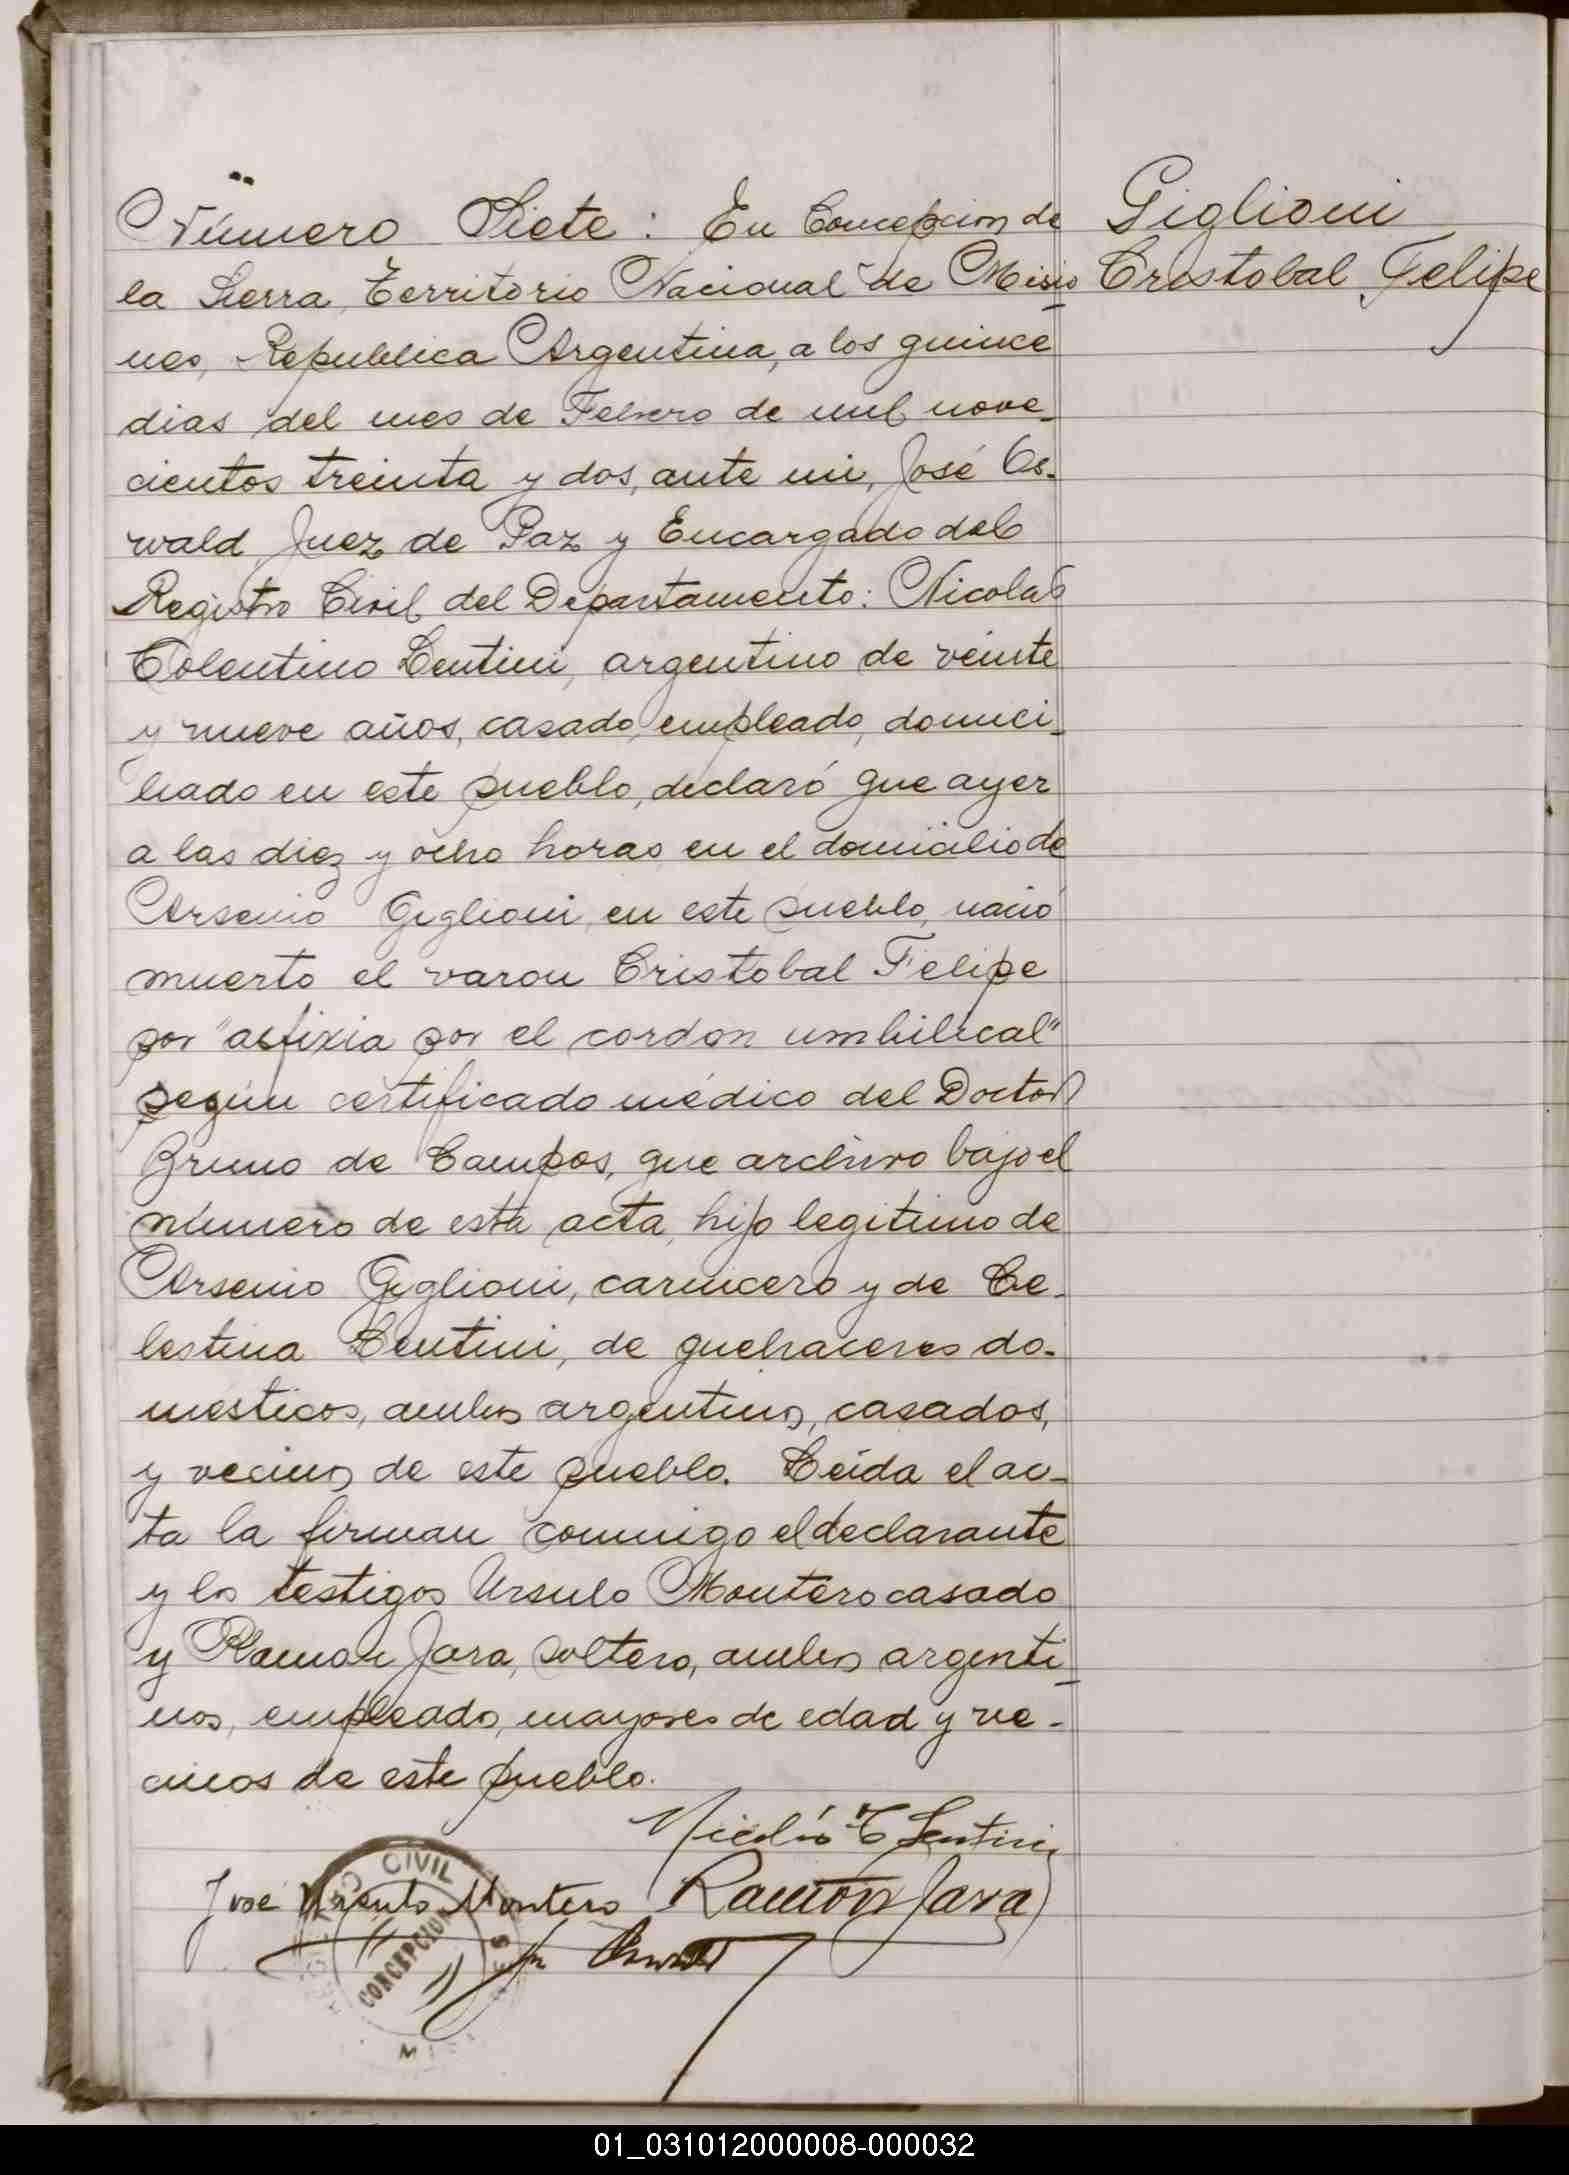 Número Siete: En Concepcion de
la Sierra, Territorio Nacional de Misio
nes, Republica Argentina, a los quince
dias del mes de Febrero de mil nove-
cientos treinta y dos, ante mi, José Os-
wald Juez de Paz y Encargado del
Registro Civil del Departamento: Nicolás
Tolentino Lentini, argentino de veinte
y nueve años, casado, empleado, domici-
liado en este pueblo, declaró que ayer
a las diez y ocho horas, en el domicilio de
Arsenio Giglioni, en este pueblo, nació
muerto el varon Cristobal Felipe
por "asfixia por el cordon umbilical"
según certificado médico del Doctor
Bruno de Campos, que archivo bajo el
número de esta acta, hijo legitimo de
Arsenio Giglioni, carnicero y de Ce-
lestina Lentini, de quehaceres do-
mesticos, ambos argentinos, casados,
y vecinos de este pueblo. Leída el ac-
ta la firman conmigo el declarante
y los testigos Ursulo Montero casado
y Ramon Jara, soltero, ambos argenti-
nos, empleados, mayores de edad y ve-
cinos de este pueblo.
Giglioni
Cristobal Felipe
Nicolás T Lentini
José Ursulo Montero Ramón Jara
Oswald
REGISTRO CIVIL
CONCEPCION
01_031012000008-000032